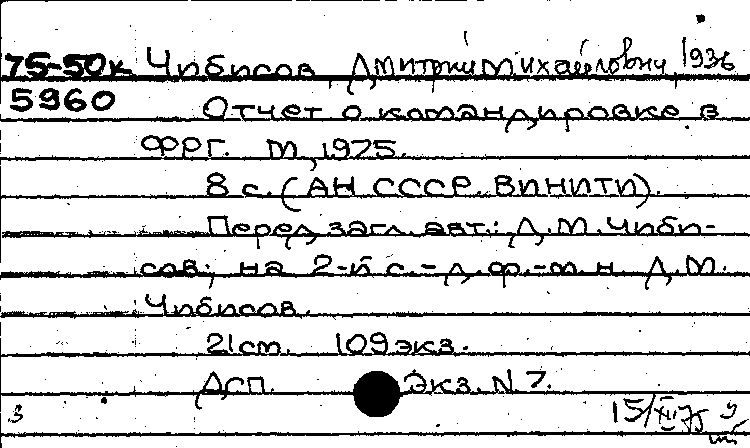 75-50к Чибисов, Дмитрий Михайлович, 1936
5960 Отчет о командировке в
ФРГ. М, 1975.
8 с. (АН СССР. ВИНИТИ).
Перед загл. авт.: Д.М. Чиби-
сов; на 2-й с. - д.ф.-м.н. Д.М.
Чибисов.
21 см. 109 экз.
Дсп. Экз. N 7.
3 15/XII 75